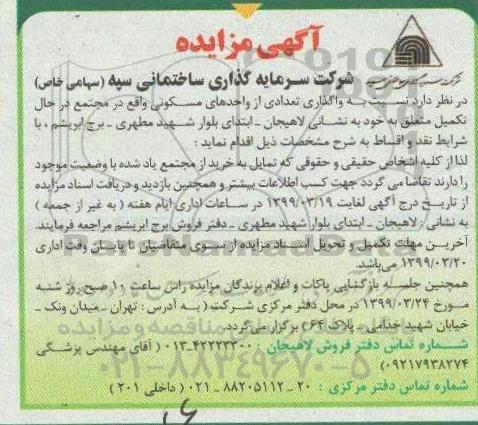 آگهی مزایده
شرکت سرمایه گذاری ساختمانی سپه (سهامی خاص)
در نظر دارد نسبت به واگذاری تعدادی از واحدهای مسکونی واقع در مجتمع در حال
تکمیل متعلق به خود به نشانی لاهیجان - ابتدای بلوار شهید مطهری - برج ابریشم ، با
شرایط نقد و اقساط به شرح مشخصات ذیل اقدام نماید :
لذا از کلیه اشخاص حقیقی و حقوقی که تمایل به خرید از مجتمع یاد شده با وضعیت موجود
را دارند تقاضا می گردد جهت کسب اطلاعات بیشتر و همچنین بازدید و دریافت اسناد مزایده
از تاریخ درج آگهی لغایت ۱۳۹۹/۰۳/۱۹ در ساعات اداری ایام هفته ( به غیر از جمعه )
به نشانی : لاهیجان - ابتدای بلوار شهید مطهری - دفتر فروش برج ابریشم مراجعه فرمایند.
آخرین مهلت تکمیل و تحویل اسناد مزایده از سوی متقاضیان تا پایان وقت اداری
۱۳۹۹/۰۳/۲۰ می‌باشد.
همچنین جلسه بازگشایی پاکات و اعلام برندگان مزایده راس ساعت ۱۰ صبح روز شنبه
مورخ ۱۳۹۹/۰۳/۲۴ در محل دفتر مرکزی شرکت ( به آدرس : تهران - میدان ونک -
خیابان شهید خدامی - پلاک ۶۴ ) برگزار می‌گردد.
شماره تماس دفتر فروش لاهیجان : ۴۲۲۲۳۳۰۰-۰۱۳ ( آقای مهندس پزشکی
۰۹۲۱۷۹۳۸۲۷۴)
شماره تماس دفتر مرکزی : ۲۰ - ۸۸۲۰۵۱۱۲ - ۰۲۱ ( داخلی ۲۰۱ )
۰۲۱-۸۸۳۴۹۶۷۰-۵